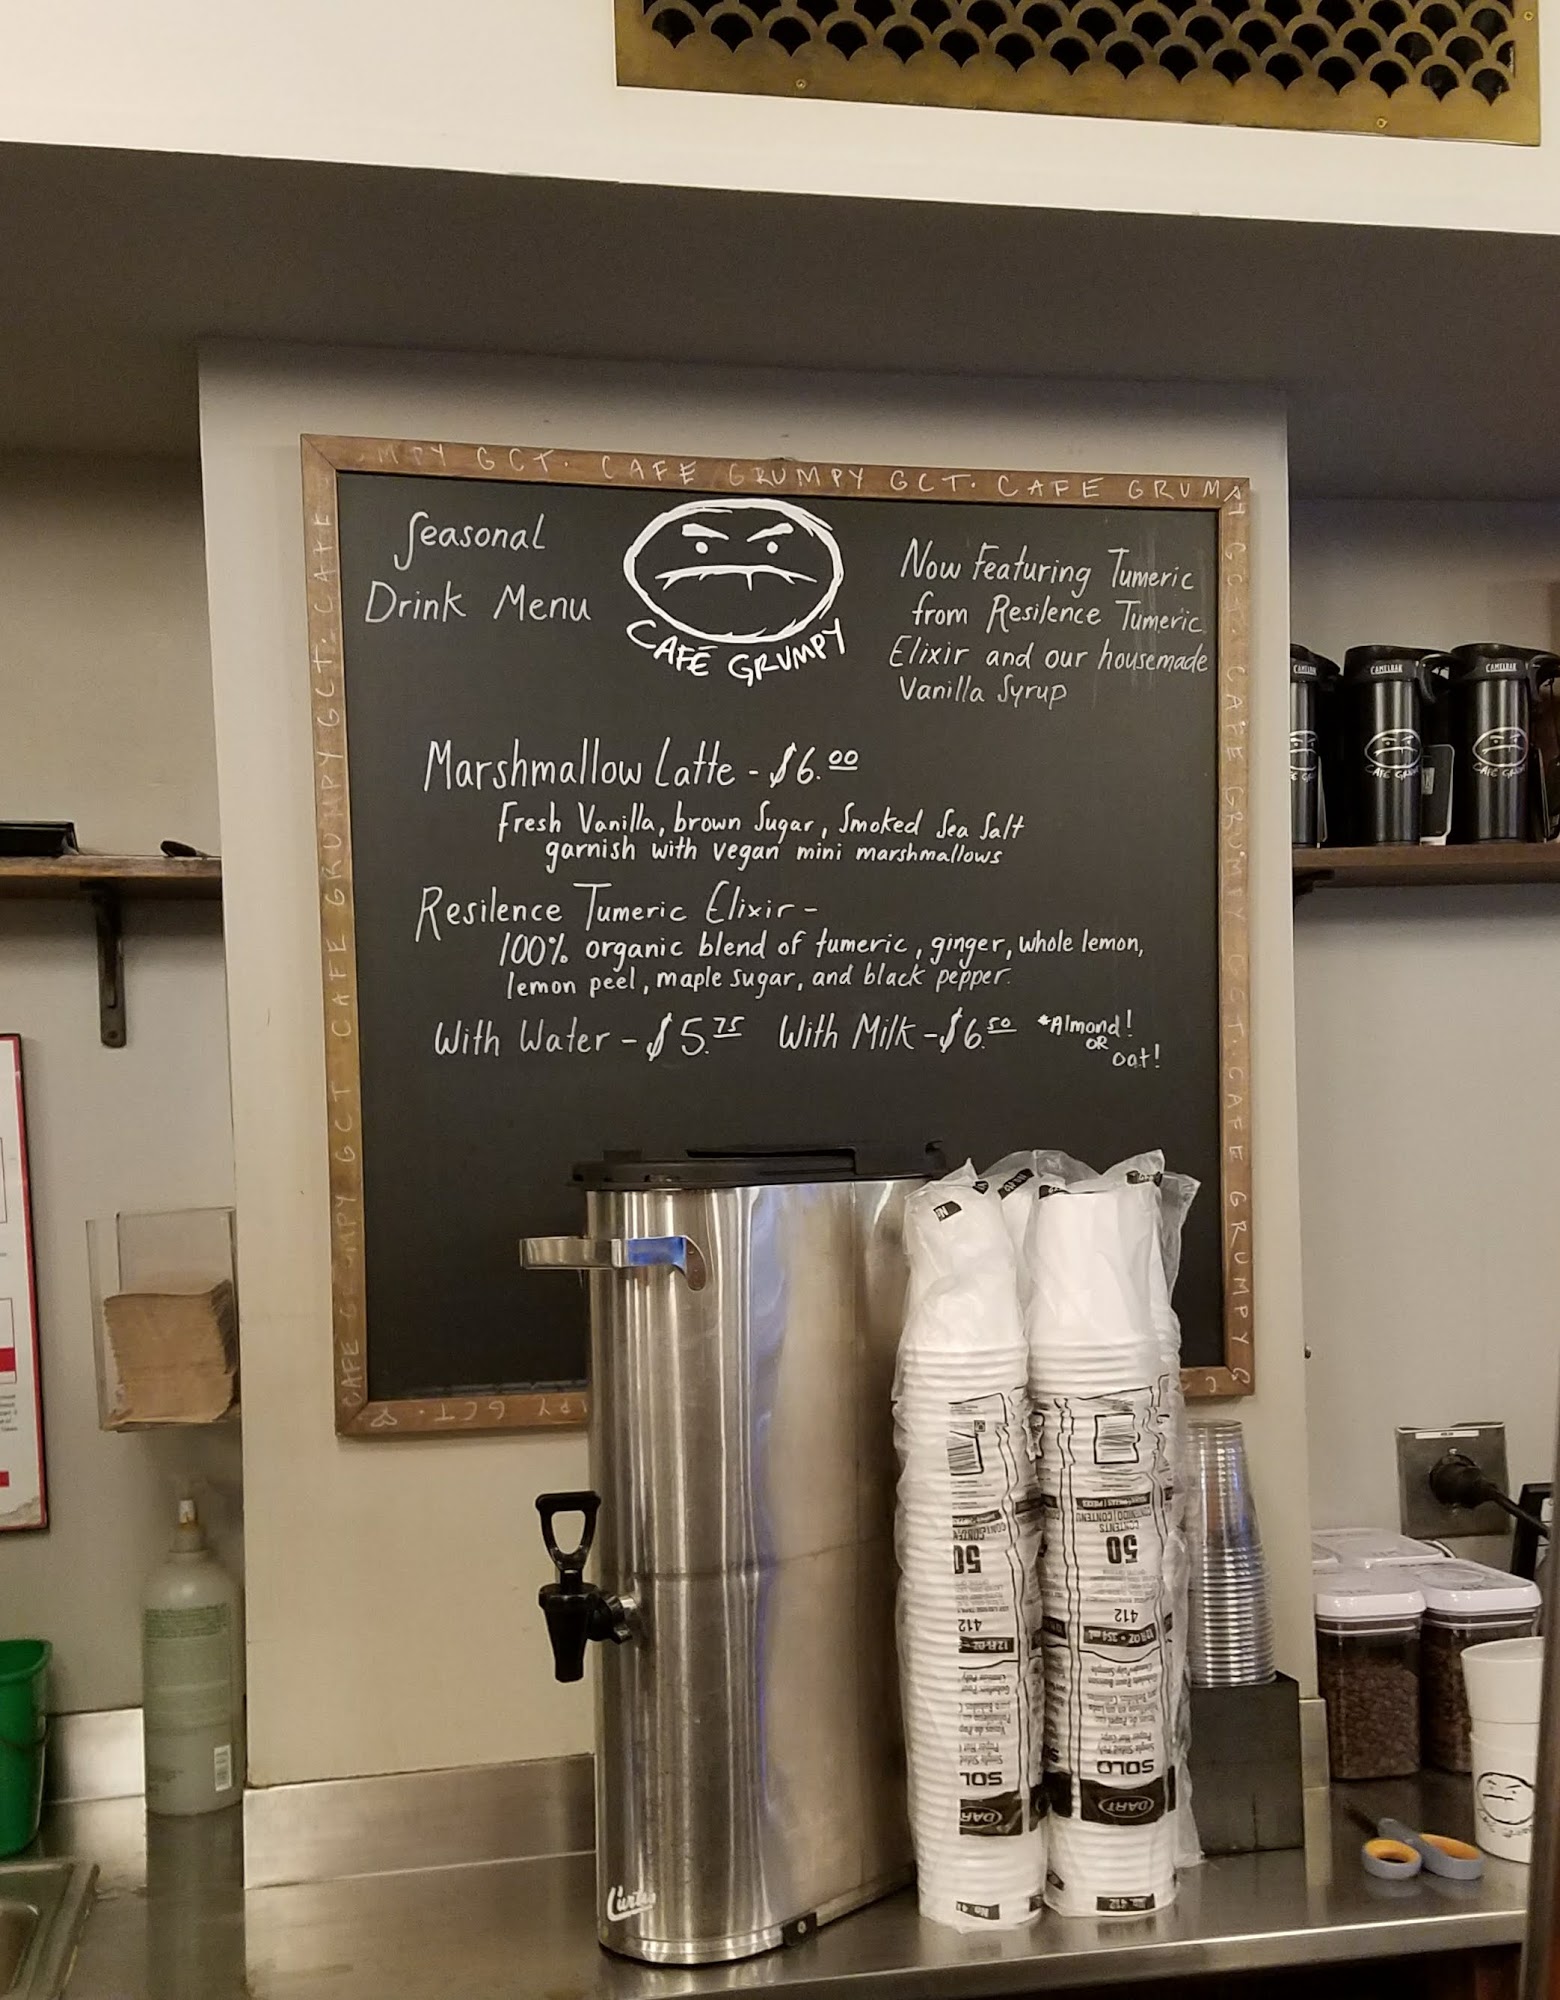 MPY GCT. CAFE GRUMPY GCT. CAFE GRUMPY
Seasonal
Drink Menu
CAFÉ GRUMPY
Now Featuring Tumeric
from Resilence Tumeric
Elixir and our housemade
Vanilla Syrup
Marshmallow Latte - $6.00
Fresh Vanilla, brown Sugar, Smoked Sea Salt
garnish with vegan mini marshmallows
Resilence Tumeric Elixir -
100% organic blend of tumeric, ginger, whole lemon,
lemon peel, maple sugar, and black pepper.
With Water - $5.75 With Milk - $6.50 *Almond!
OR
oat!
CAFE GRUMPY GCT CAFE GRUMPY GCT. CAFE
GCT. CAFE GRUMPY GCT. CAFE GRUMPY G
PY GCT.
CAMELBAK
CAMELBAK
CAFÉ GR
CAFÉ GRUM
Curtis
CONTENTS
CONTENIDO|CONTENU
50
50
412
412
12 FL OZ
12 FL OZ • 354 mL
SOLO
SOL
DART
DAR
No. 412
No. 4